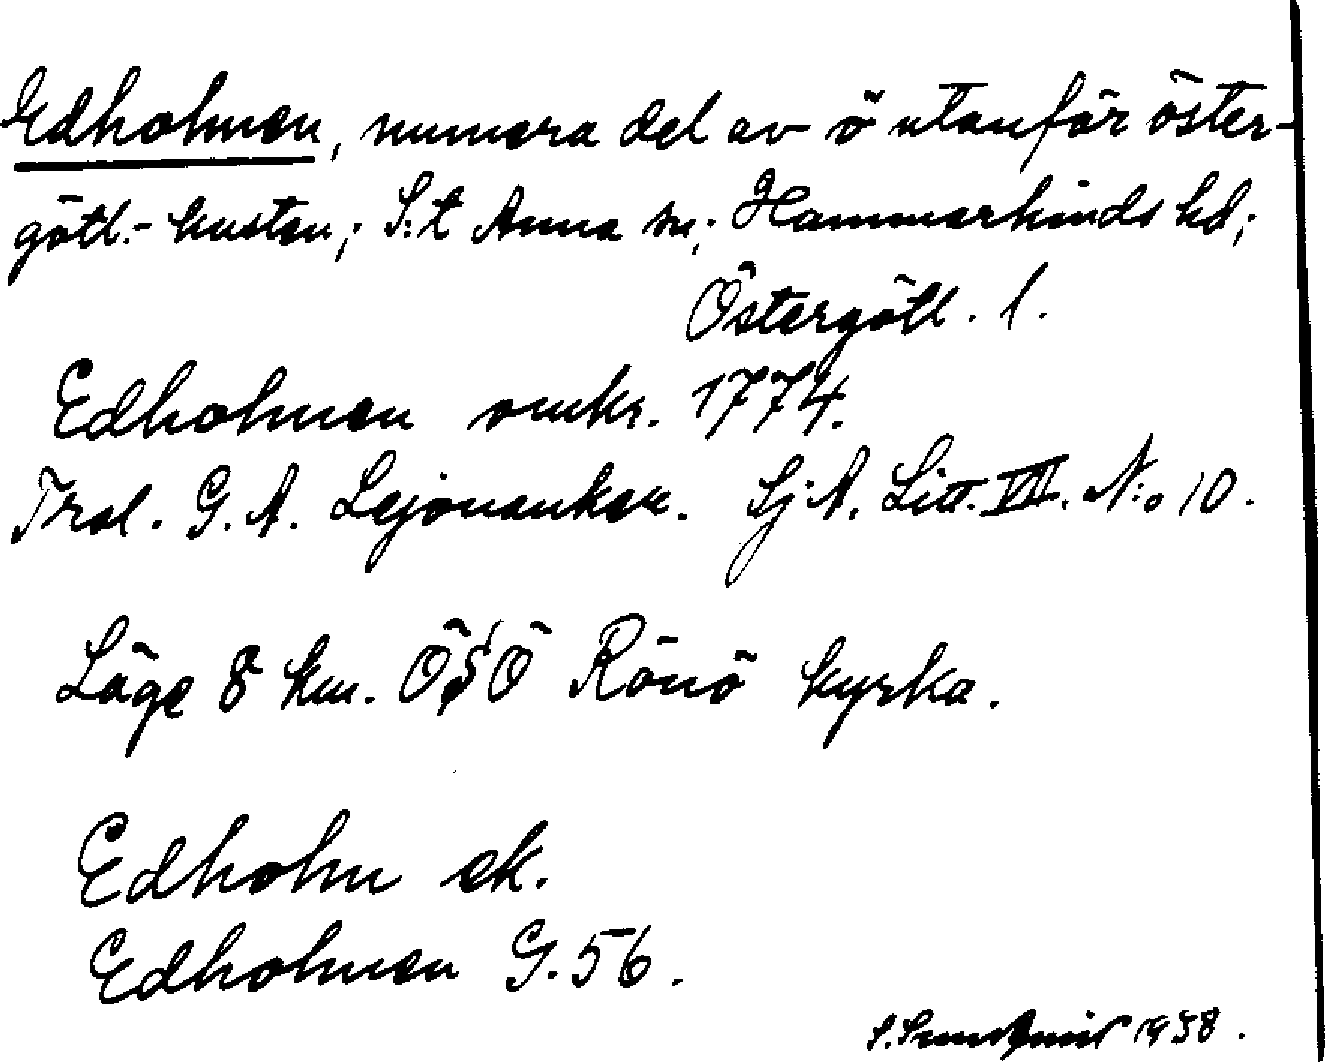 Edholmen, numera del av ö utanför öster-
götl.- kusten; S:t Anna sn; Hammarkinds hd;
Östergötl. l.
Edholmen omkr. 1774.
Tral. G. A. Lejonanker. Sj. A. Litt. VII. N:o 10.
Läge 8 km. ÖSÖ Rönö kyrka.
Edholm ek.
Edholmen G. 56.
1938.